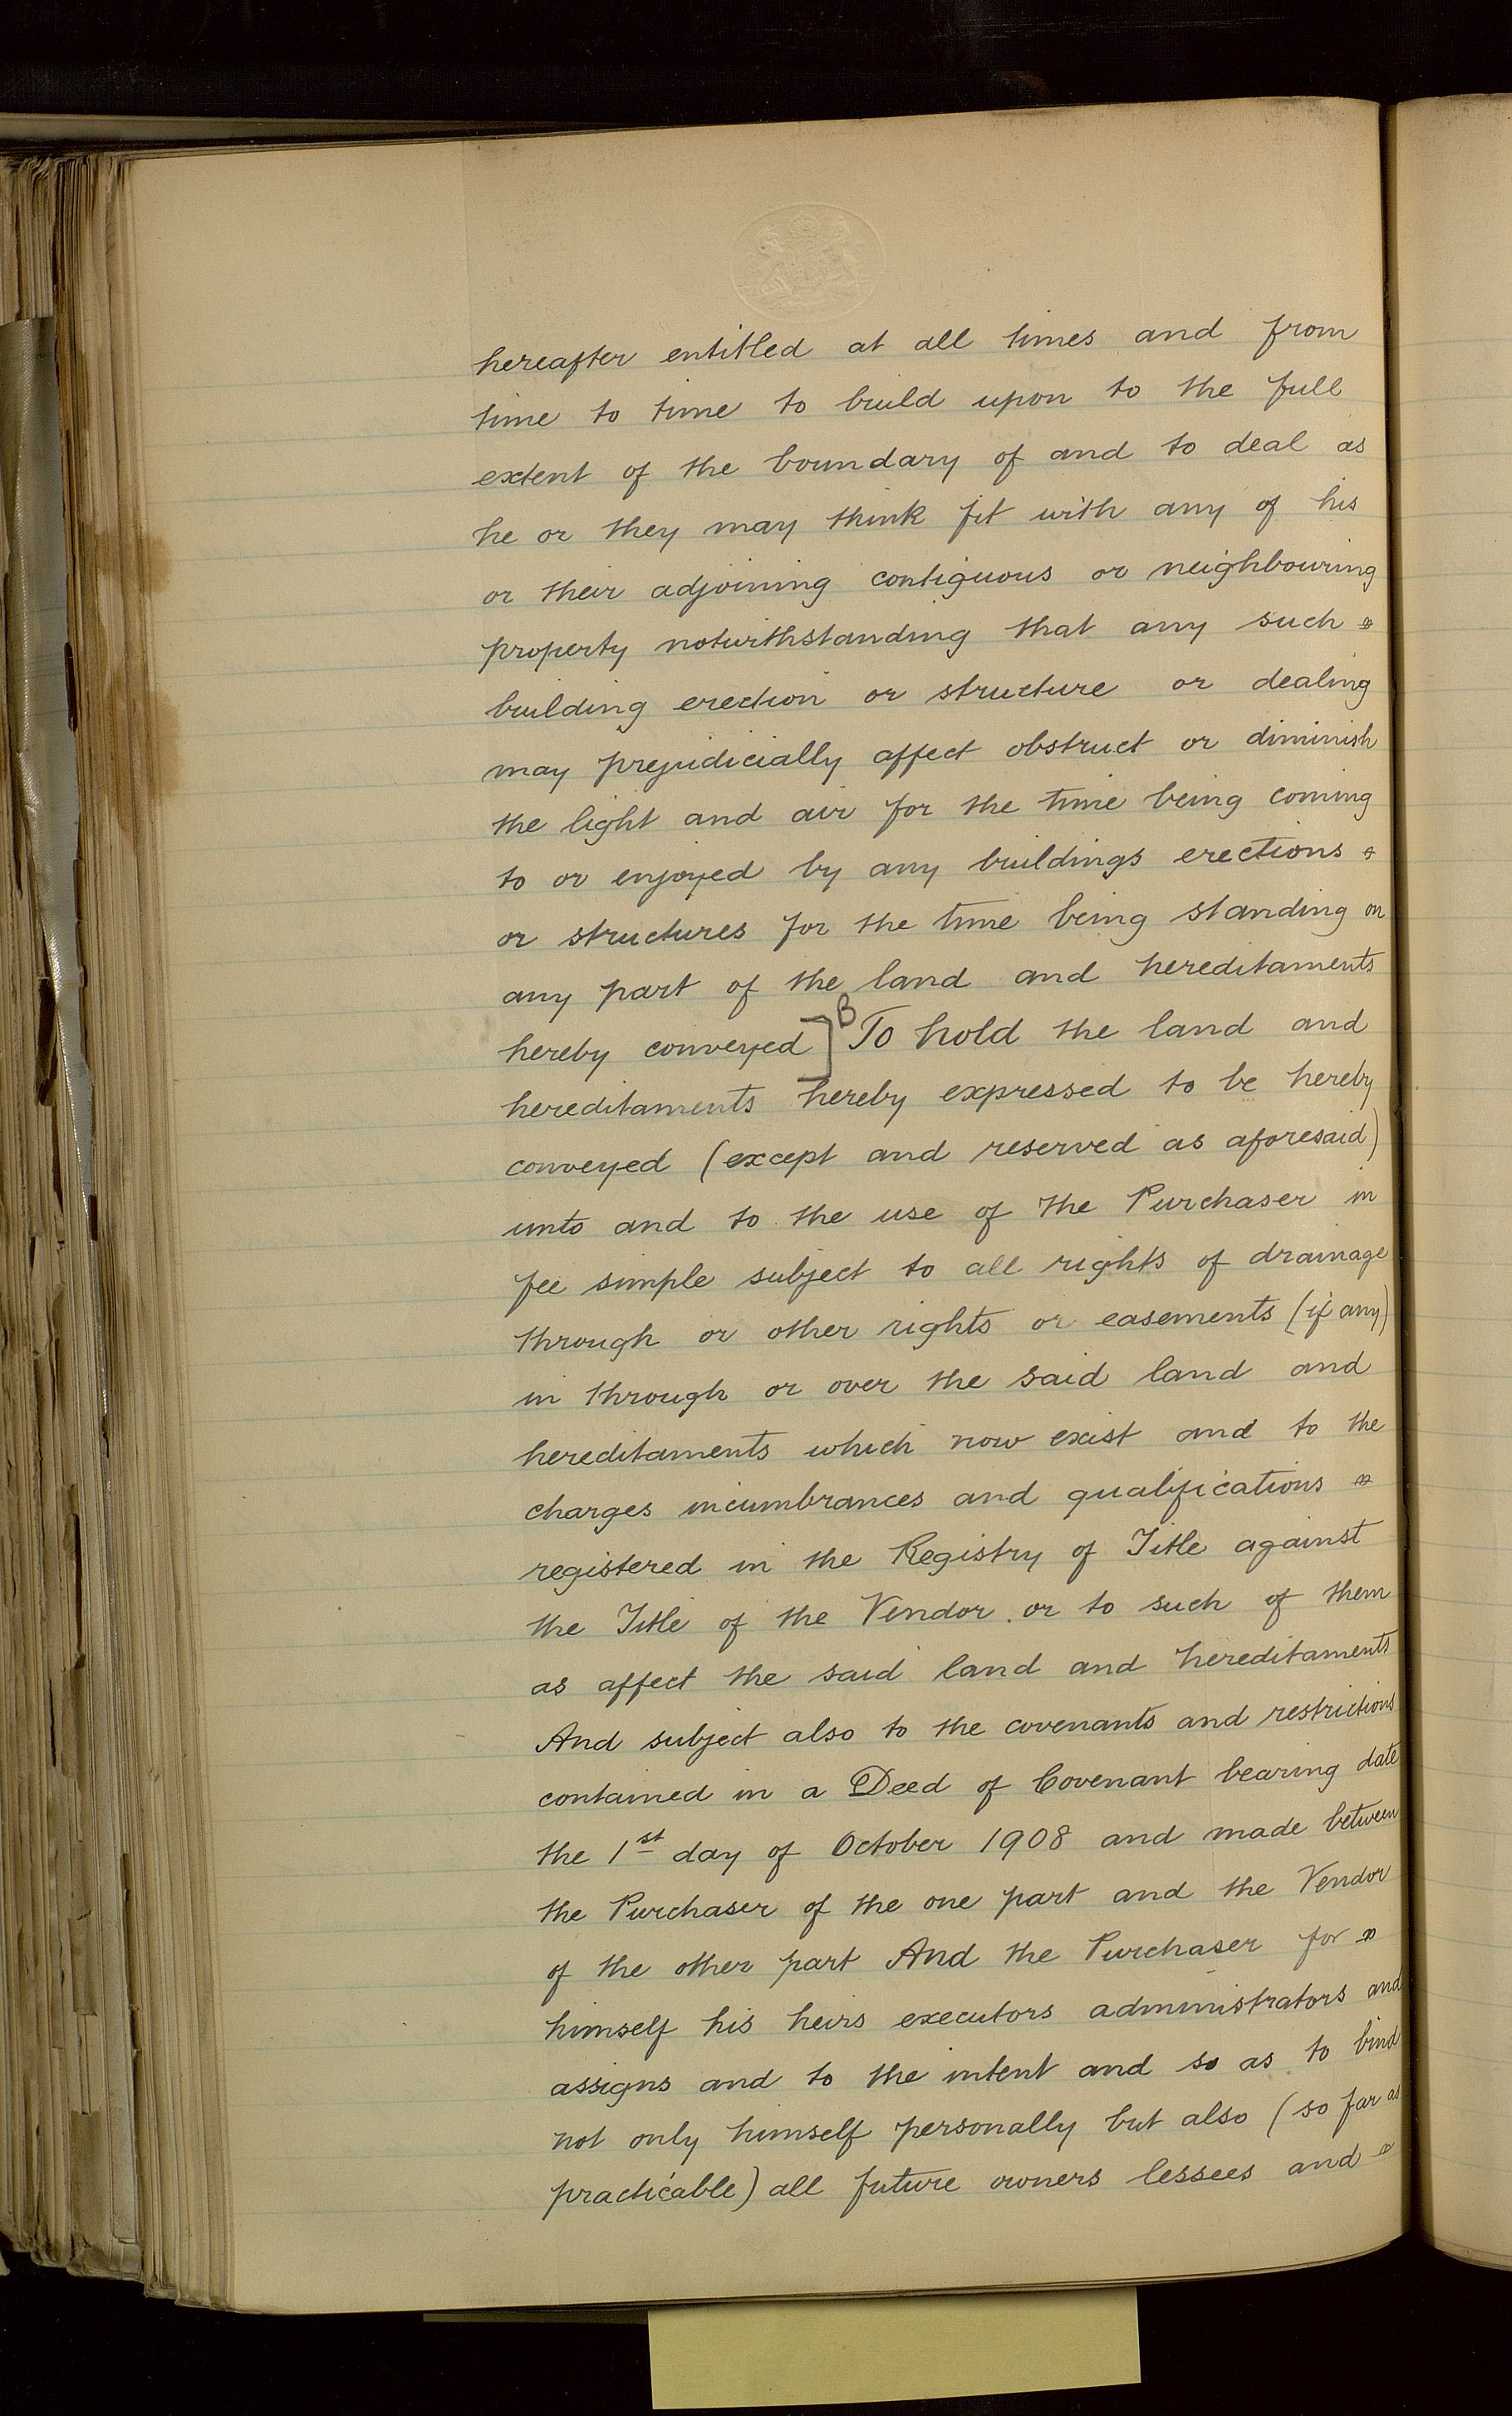 hereafter entitled at all times and from
time to time to build upon to the full
extent of the boundary of and to deal as
he or they may think fit with any of his
or their adjoining contiguous or neighbouring
property notwithstanding that any such
building erection or structure or dealing
may prejudicially affect obstruct or diminish
the light and air for the time being coming
to or enjoyed by any buildings erections
or structures for the time being standing on
any part of the land and hereditaments
hereby conveyed] B To hold the land and
hereditaments hereby expressed to be hereby
conveyed (except and reserved as aforesaid)
unto and to the use of the Purchaser in
fee simple subject to all rights of drainage
through or other rights or easements (if any)
in through or over the said land and
hereditaments which now exist and to the
charges incumbrances and qualifications
registered in the Registry of Title against
the Title of the Vendor or to such of them
as affect the said land and hereditaments
And subject also to the covenants and restrictions
contained in a Deed of Covenant bearing date
the 1st day of October 1908 and made between
the Purchaser of the one part and the Vendor
of the other part And the Purchaser for
himself his heirs executors administrators and
assigns and to the intent and so as to bind
not only himself personally but also (so far as
practicable) all future owners lessees and